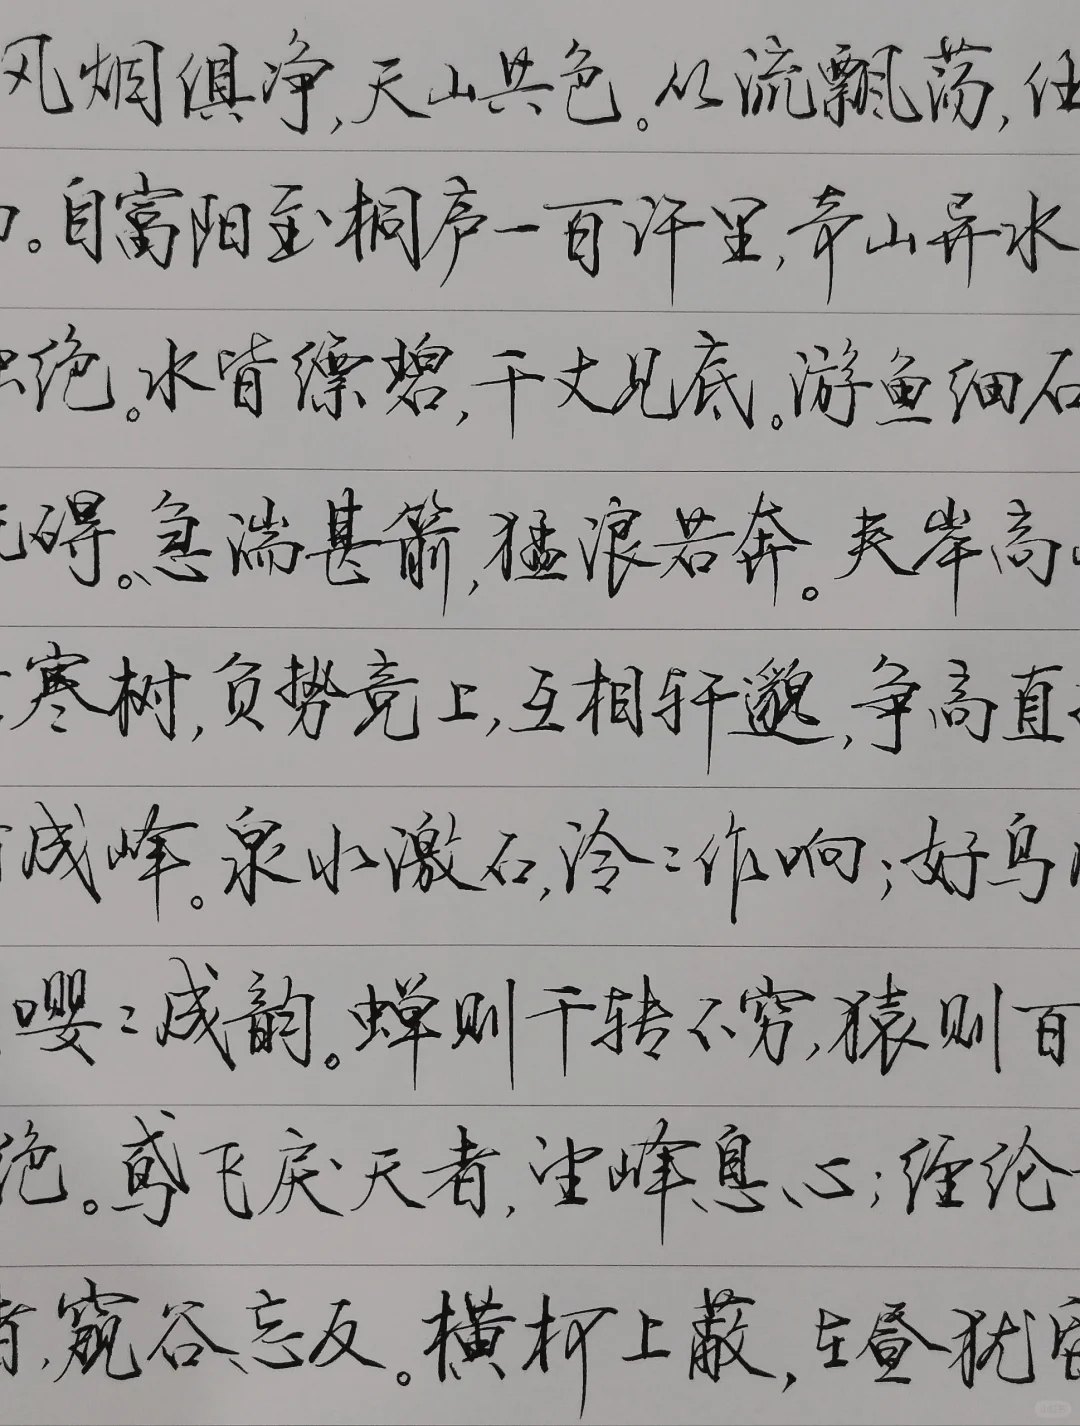 风烟俱净,天山共色。从流飘荡,任
。自富阳至桐庐一百许里,奇山异水
绝。水皆缥碧,千丈见底。游鱼细石
碍。急湍甚箭,猛浪若奔。夹岸高
寒树,负势竞上,互相轩邈,争高直
成峰。泉水激石,泠〻作响;好鸟
嘤〻成韵。蝉则千转不穷,猿则百
绝。鸢飞戾天者,望峰息心;经纶
者,窥谷忘反。横柯上蔽,在昼犹昏